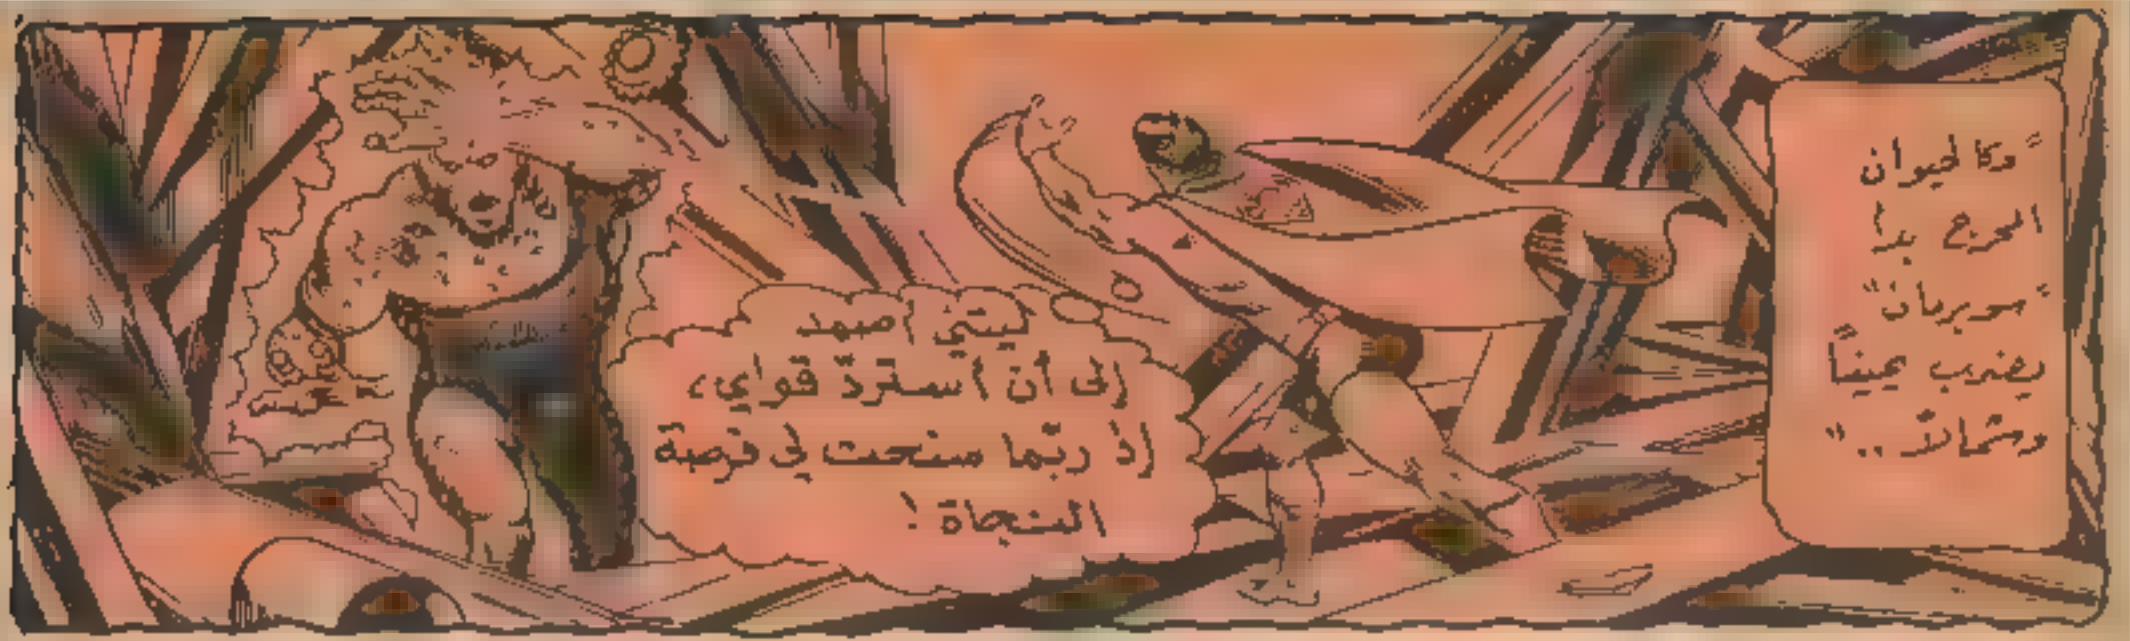 "وكالحيوان
الجريح بدأ
"سوبرمان"
يضرب يميناً
وشمالاً .."
ليتني أصمد
إلى أن أسترد قواي،
إذ ربّما سنحت لي فرصة
النجاة!